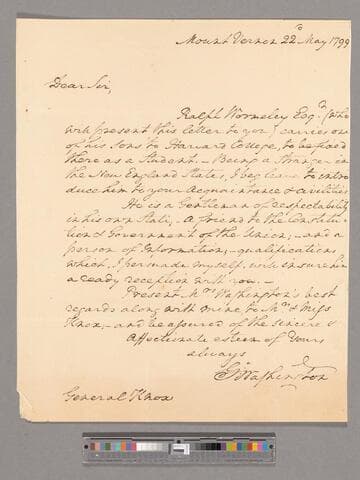 Mount Vernon 22d May 1799
Dear Sir,
Ralph Wormeley Esqr (who
will present this letter to you) carries one
of his Sons to Harvard College, to be fixed
there as a Student. – Being a Stranger in
the New England States, I beg leave to intro
duce him to your Acquaintance & civilities
He is a Gentleman of respectability
in his own State, – A friend to the Constitu-
tion & Government of the Union; – and a
person of Information; qualifications
which, I persuade myself, will ensure him
a ready reception with you. –
Present Mrs Washington's best
regards along with mine to Mrs & Miss
Knox, – and be assured of the sincere &
Affectionate esteem of Yours
always
Go Washington
General Knox